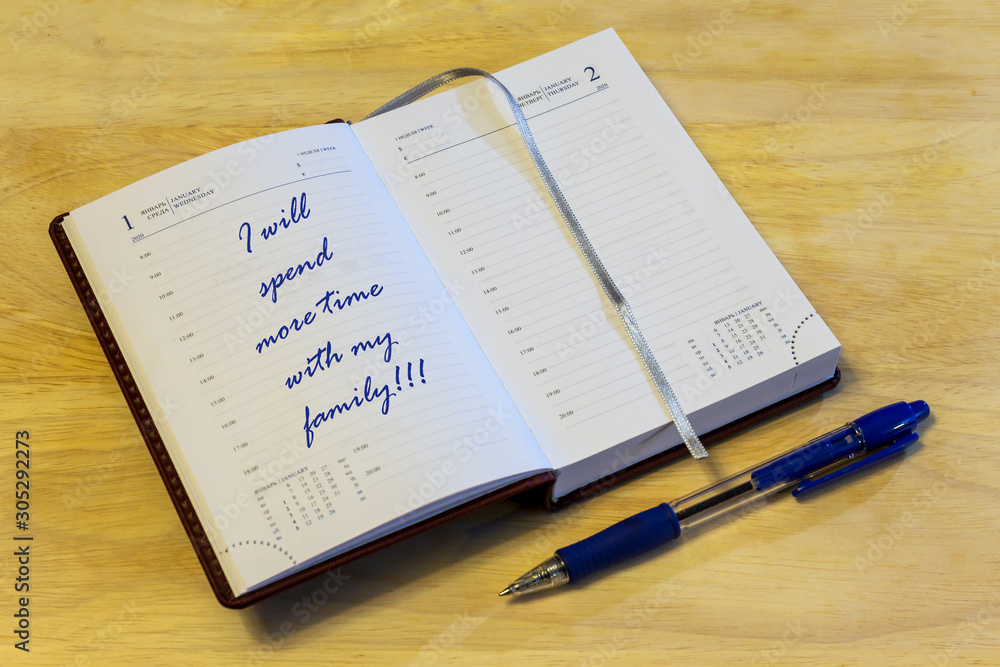 1
ЯНВАРЬ | JANUARY
СРЕДА | WEDNESDAY
2020
1 НЕДЕЛЯ | WEEK
$
€
8:00
9:00
10:00
11:00
12:00
13:00
14:00
15:00
16:00
17:00
18:00
19:00
20:00
I will
spend
more time
with my
family!!!
ЯНВАРЬ | JANUARY
1 НЕДЕЛЯ | WEEK
$
€
ЯНВАРЬ | JANUARY
ЧЕТВЕРГ | THURSDAY
2
2020
8:00
9:00
10:00
11:00
12:00
13:00
14:00
15:00
16:00
17:00
18:00
19:00
20:00
ЯНВАРЬ | JANUARY
6 13 20 27
7 14 21 28
1 8 15 22 29
2 9 16 23 30
3 10 17 24 31
4 11 18 25
5 12 19 26
Adobe Stock | #305292273